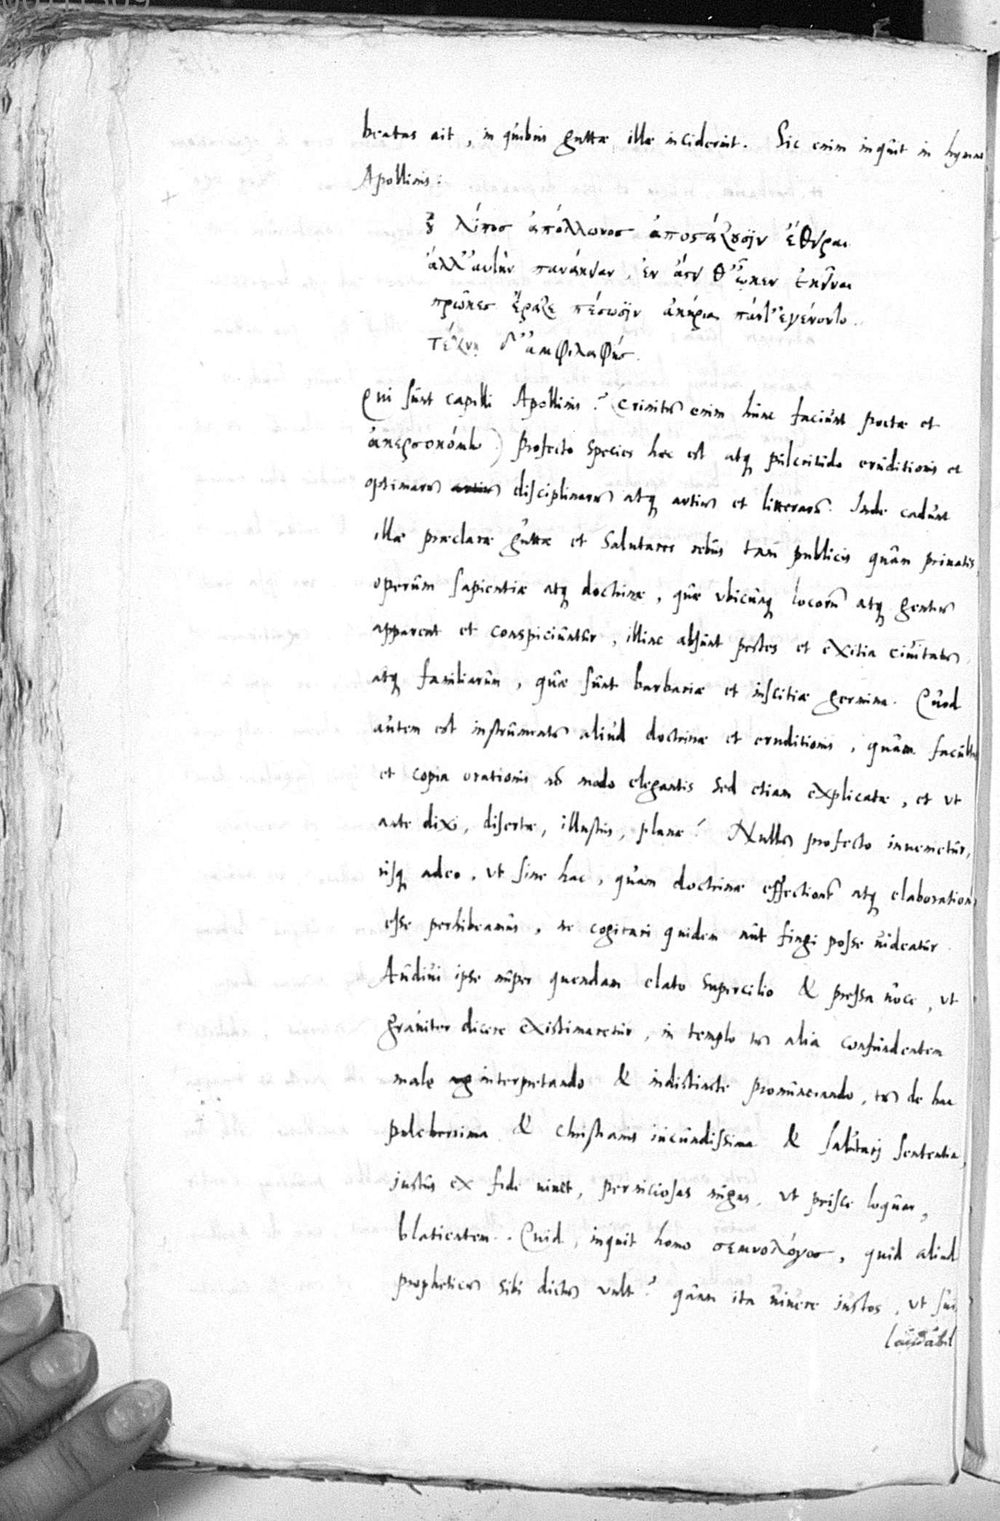 beatas ait, in quibus guttæ illæ inciderint. Sic enim inquit in hymno
Apollinis:
οὐ λίπος ἀπόλλωνος ἀποστάζουσιν ἔθειραι
ἀλλ' αὐτὴν πανάκειαν, ἐν ἄστυ δ' ᾧκεν ἐκεῖναι
πρῶκες ἔραζε πέσωσιν ἀκήρια πάντ' ἐγένοντο.
τέχνη δ' ἀμφιλαφής.
Qui sunt capilli Apollinis? (Crinitum enim hunc faciunt poetæ et
ἀκερσοκόμην) Profecto species hæc est atq pulcritudo eruditionis et
optimarum disciplinarum atq artium et litterarum. Inde cadunt
illæ præclaræ guttæ et salutares rebus tam publicis quam priuatis
operum sapientiæ atq doctrinæ, quæ vbicunq locorum atq gentium
apparent et conspiciuntur, illinc absunt pestes et exitia ciuitatum
atq familiarum, quæ sunt barbariæ et inscitiæ germina. Quod
autem est instrumentum aliud doctrinæ et eruditionis, quam facultas
et copia orationis non modo elegantis sed etiam explicatæ, et ut
ante dixi, disertæ, illustris, planæ? Nullum profecto inuenietur,
usq adeo, ut sine hac, quam doctrinæ effectionem atq elaborationem
esse perhibeamus, ne cogitari quidem aut fingi posse uideatur.
Audiui ipse nuper quendam elato supercilio & pressa uoce, ut
grauiter dicere existimaretur, in templo tum alia confundentem
male interpretando & indistincte pronunciando, tum de hac
pulcherrima & christianis iucundissima & salutari sententia,
justus ex fide uiuet, perniciosas nugas, ut prisce loquar,
blaticatem. Quid, inquit homo σεμνολόγος, quid aliud
propheticum sibi dictum vult? quam ita uiuere justos, ut sui
laudabil